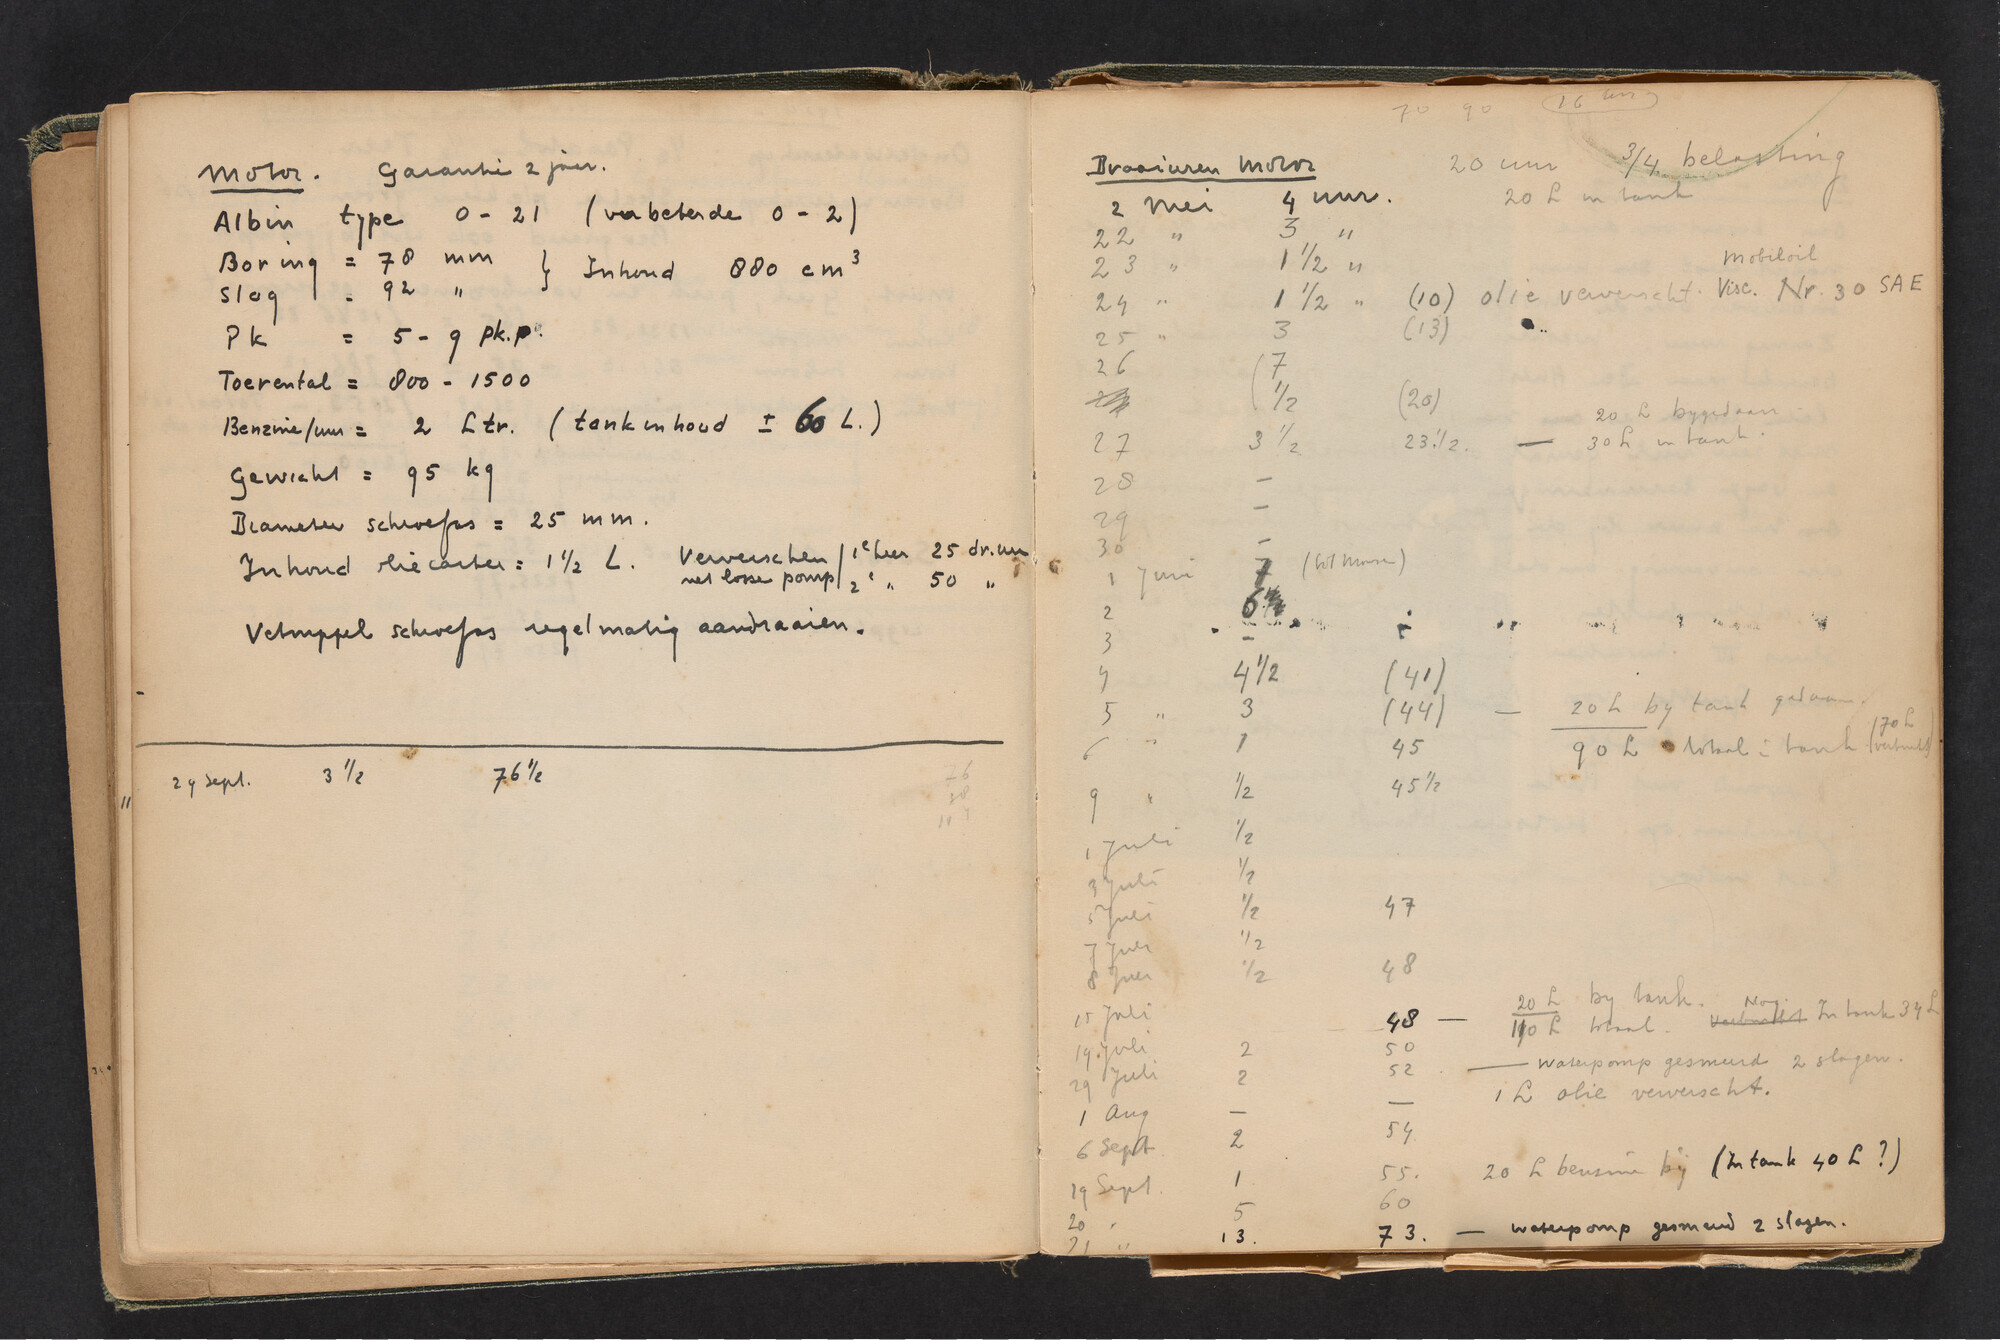 Motor. Garantie 2 jaar.
Albin type O-21 (verbeterde O-2)
Boring = 78 mm } Inhoud 880 cm³
Slag = 92 "
Pk = 5-9 pk.p.
Toerental = 800-1500
Benzine/uur = 2 Ltr. (tankinhoud ± 60 L.)
Gewicht = 95 kg
Diameter schroefas = 25 mm.
Inhoud oliecarter = 1½ L. Ververschen / 1e keer 25 dr.uur
met losse pomp / 2e " 50 "
Vetnippel schroefas regelmatig aandraaien.
24 Sept. 3½ 76½
76
38
70 90
Draaiuren Motor 20 uur 3/4 belasting
2 Mei 4 uur. 20 L in tank
22 " 3 "
23 " 1½ "
Mobiloil
24 " 1½ " (10) olie ververscht. Visc. Nr. 30 SAE
25 " 3 (13)
26 7
½ (20)
20 L bygedaan
27 3½ 23½. — 30 L in tank.
28 –
29 –
30 –
1 Juni 7
2 6
3 –
4 4½ (41)
5 " 3 (44) — 20 L by tank gedaan.
6 " 1 45 90 L totaal i tank (70 L verbruikt)
9 " ½ 45½
1 Juli ½
3 Juli ½
5 Juli ½ 47
7 Juli ½
8 Juli ½ 48
20 L by tank.
15 Juli 48 — 110 L totaal. Verbruikt Nog In tank 34 L
19 Juli 2 50
29 Juli 2 52 — waterpomp gesmeerd 2 slagen.
1 L olie ververscht.
1 Aug — —
6 Sept 2 54
19 Sept. 1 55. 20 L benzine bij (In tank 40 L?)
20 " 5 60
21 " 13. 73. — waterpomp gesmeerd 2 slagen.